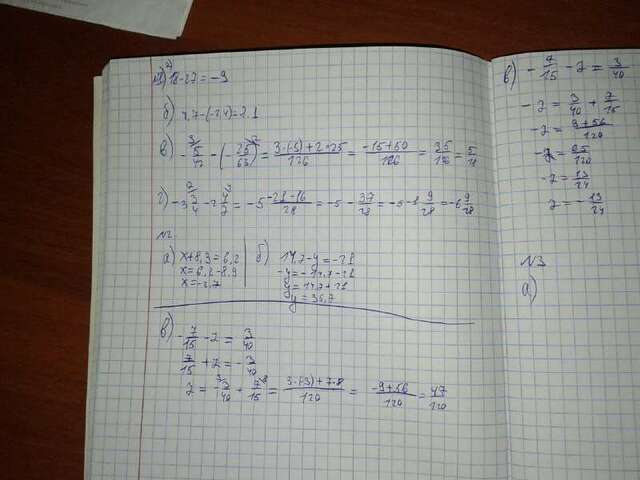 а) 18-27 = -9
б) 4,7-(-2,4)=7.1
в) - 5/42 - (- 25/63) = 3·(-5)+2·25/126 = -15+50/126 = 35/126 = 5/18
г) -3 3/4 - 2 4/7 = -5 -21-16/28 = -5 - 37/28 = -5-1 9/28 = -6 9/28
N2
а) x+8,9=6,2
x=6,2-8.9
x=-2,7
б) 14,7-y=-21
-y=-14,7-21
y=14,7+21
y=35,7
в) - 7/15 - z = 3/40
7/15 + z = - 3/40
z = - 3/40 + 7/15 = 3·(-3)+7·8/120 = -9+56/120 = 47/120
в) - 7/15 - z = 3/40
-z = 3/40 + 7/15
-z = 9+56/120
-z = 65/120
-z = 13/24
z = - 13/24
N3
а)